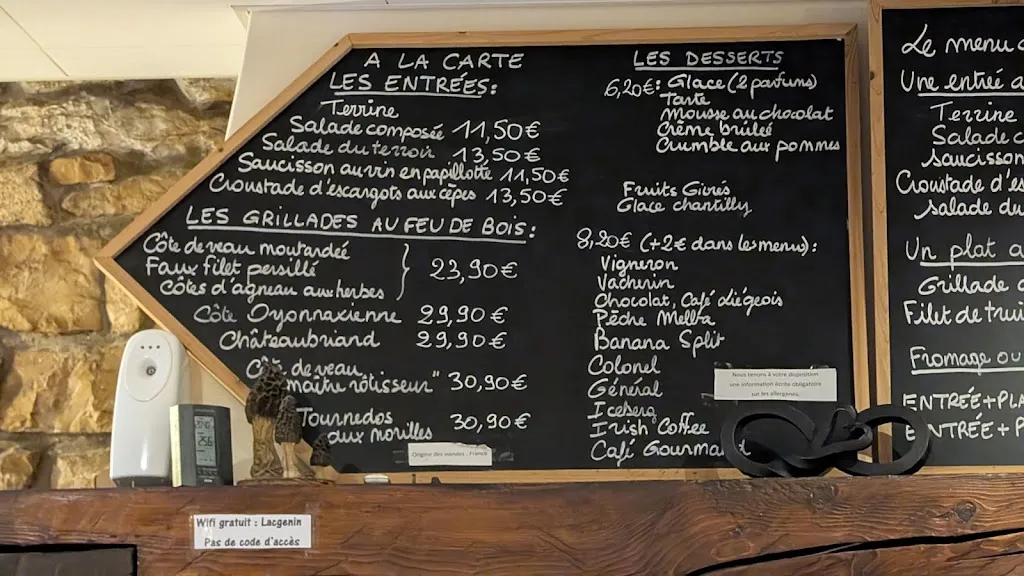 A LA CARTE
LES ENTRÉES:
Terrine
Salade composée 11,50€
Salade du terroir 13,50€
Saucisson au vin en papillotte 11,50€
Croustade d'escargots aux cêpes 13,50€
LES GRILLADES AU FEU DE BOIS:
Côte de veau moutardée
Faux filet persillé
Côtes d'agneau aux herbes
23,90€
Côte Oyonnaxienne 29,90€
Châteaubriand 29,90€
Côte de veau
maître rôtisseur" 30,90€
Tournedos
aux morilles 30,90€
Origine des viandes : France
LES DESSERTS
6,20€: Glace (2 parfums)
Tarte
Mousse au chocolat
Crème brûlée
Crumble aux pommes
Fruits Givrés
Glace chantilly
8,20€ (+2€ dans les menus):
Vigneron
Vacherin
Chocolat, Café liégeois
Pêche Melba
Banana Split
Colonel
Général
Iceberg
Irish Coffee
Café Gourmand
Nous tenons à votre disposition
une information écrite obligatoire
sur les allergènes.
Le menu
Une entrée
Terrine
Salade
Saucisson
Croustade
salade du
Un plat
Grillade
Filet de
Fromage ou
ENTRÉE+
ENTRÉE+
Wifi gratuit : Lacgenin
Pas de code d'accès